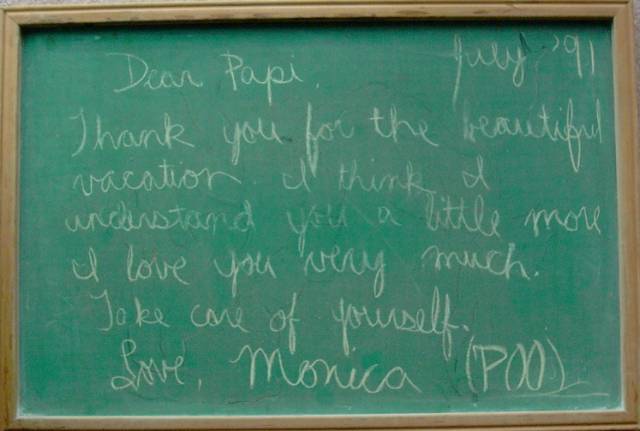 Dear Papi, July '91
Thank you for the beautiful
vacation. I think I
understand you a little more
I love you very much.
Take care of yourself.
Love, Monica (POO)